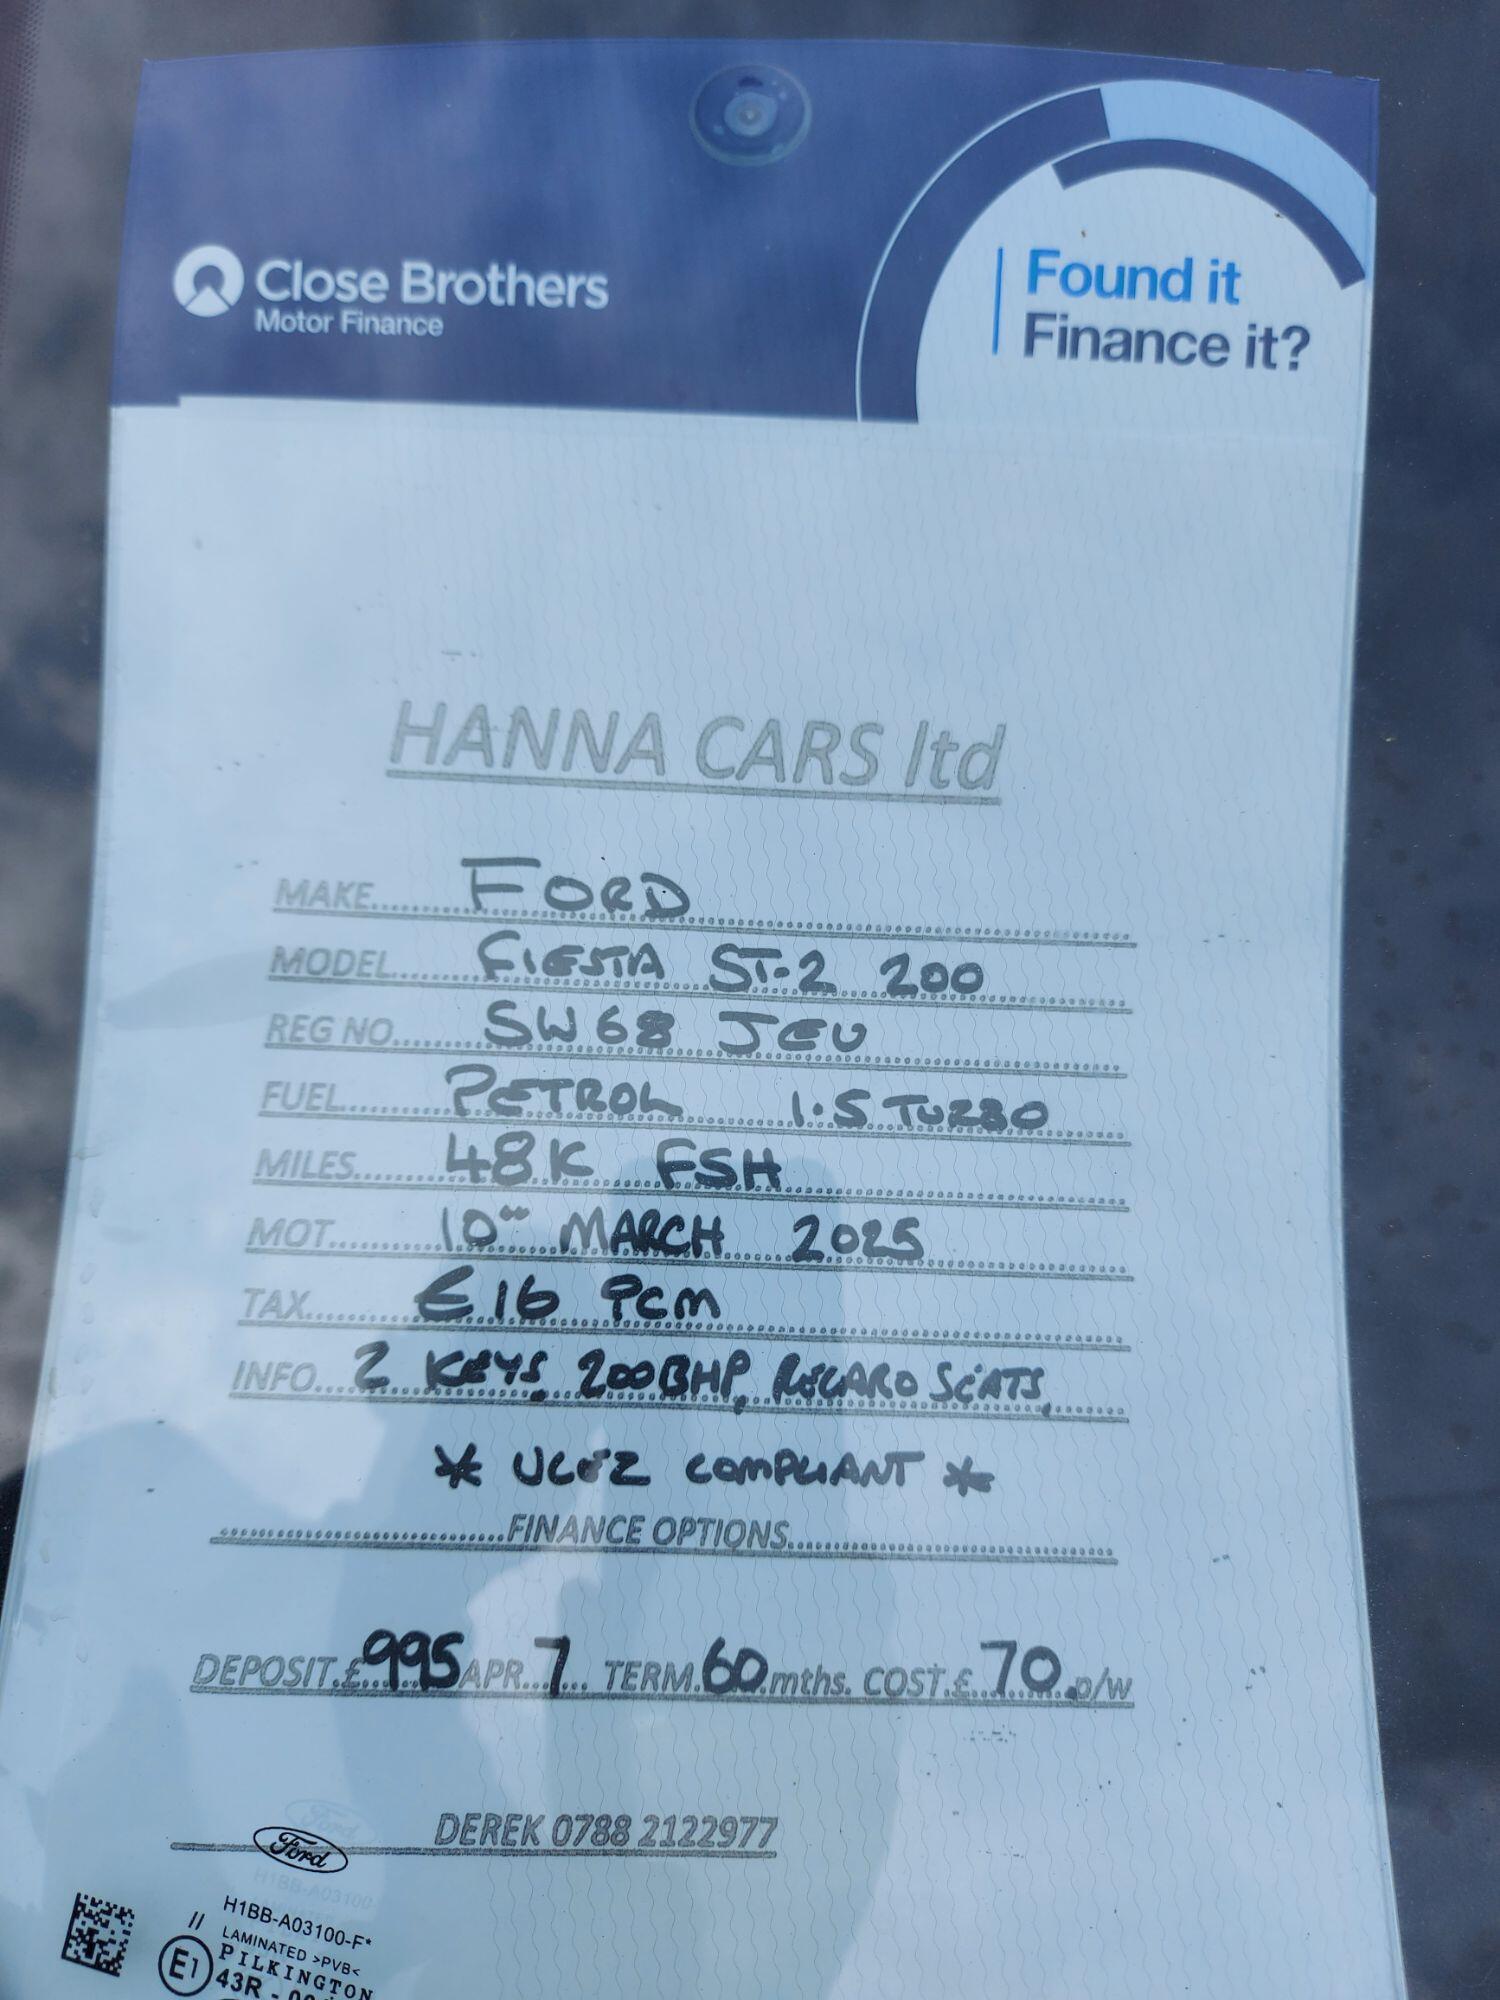 Close Brothers
Motor Finance
Found it
Finance it?
HANNA CARS ltd
MAKE FORD
MODEL FIESTA ST-2 200
REG NO SW68 JEU
FUEL PETROL 1.5 TURBO
MILES 48K FSH
MOT 10TH MARCH 2025
TAX £16 PCM
INFO 2 KEYS, 200BHP, RECARO SEATS,
* ULEZ COMPLIANT *
FINANCE OPTIONS
DEPOSIT £ 995 APR 7 TERM 60 mths. COST £ 70 p/w
DEREK 0788 2122977
Ford
H1BB-A03100-F*
// LAMINATED >PVB<
E1 PILKINGTON
43R -